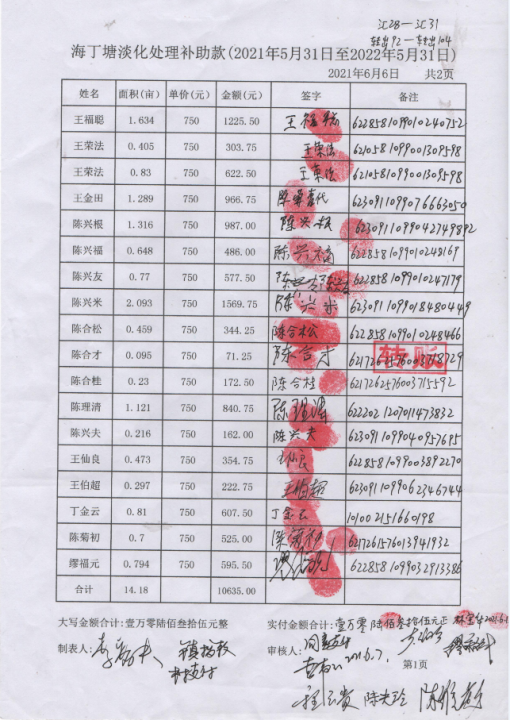 汇28—汇31
转出92—转出104
海丁塘淡化处理补助款(2021年5月31日至2022年5月31日)
2021年6月6日 共2页
姓名 面积(亩) 单价(元) 金额(元) 签字 备注
王福聪 1.634 750 1225.50 王福聪 6228581099010240752
王荣法 0.405 750 303.75 王荣法 6210581099001309598
王荣法 0.83 750 622.50 王荣法 6210581099001309598
王金田 1.289 750 966.75 6230911099076663050
陈兴根 1.316 750 987.00 陈兴根 6230911099042749892
陈兴福 0.648 750 486.00 陈兴福 6228581099010248169
陈兴友 0.77 750 577.50 6228581099010247179
陈兴米 2.093 750 1569.75 陈兴米 6230911099018480449
陈合松 0.459 750 344.25 陈合松 6228581099010248466
陈合才 0.095 750 71.25 陈合才
转账
陈合桂 0.23 750 172.50 陈合桂 6217262576003715592
陈理清 1.121 750 840.75 陈理清 6222021207011473832
陈兴夫 0.216 750 162.00 陈兴夫 6230911099040957695
王仙良 0.473 750 354.75 6228581099003892270
王伯超 0.297 750 222.75 王伯超 6230911099062346744
丁金云 0.81 750 607.50 丁金云 101002151660198
陈菊初 0.7 750 525.00 陈菊初 6217261576013941932
缪福元 0.794 750 595.50 6228581099032913386
合计 14.18 10635.00
大写金额合计:壹万零陆佰叁拾伍元整 实付金额合计:壹万零陆佰叁拾伍元正
制表人: 审核人:
2021.6.7.
第1页